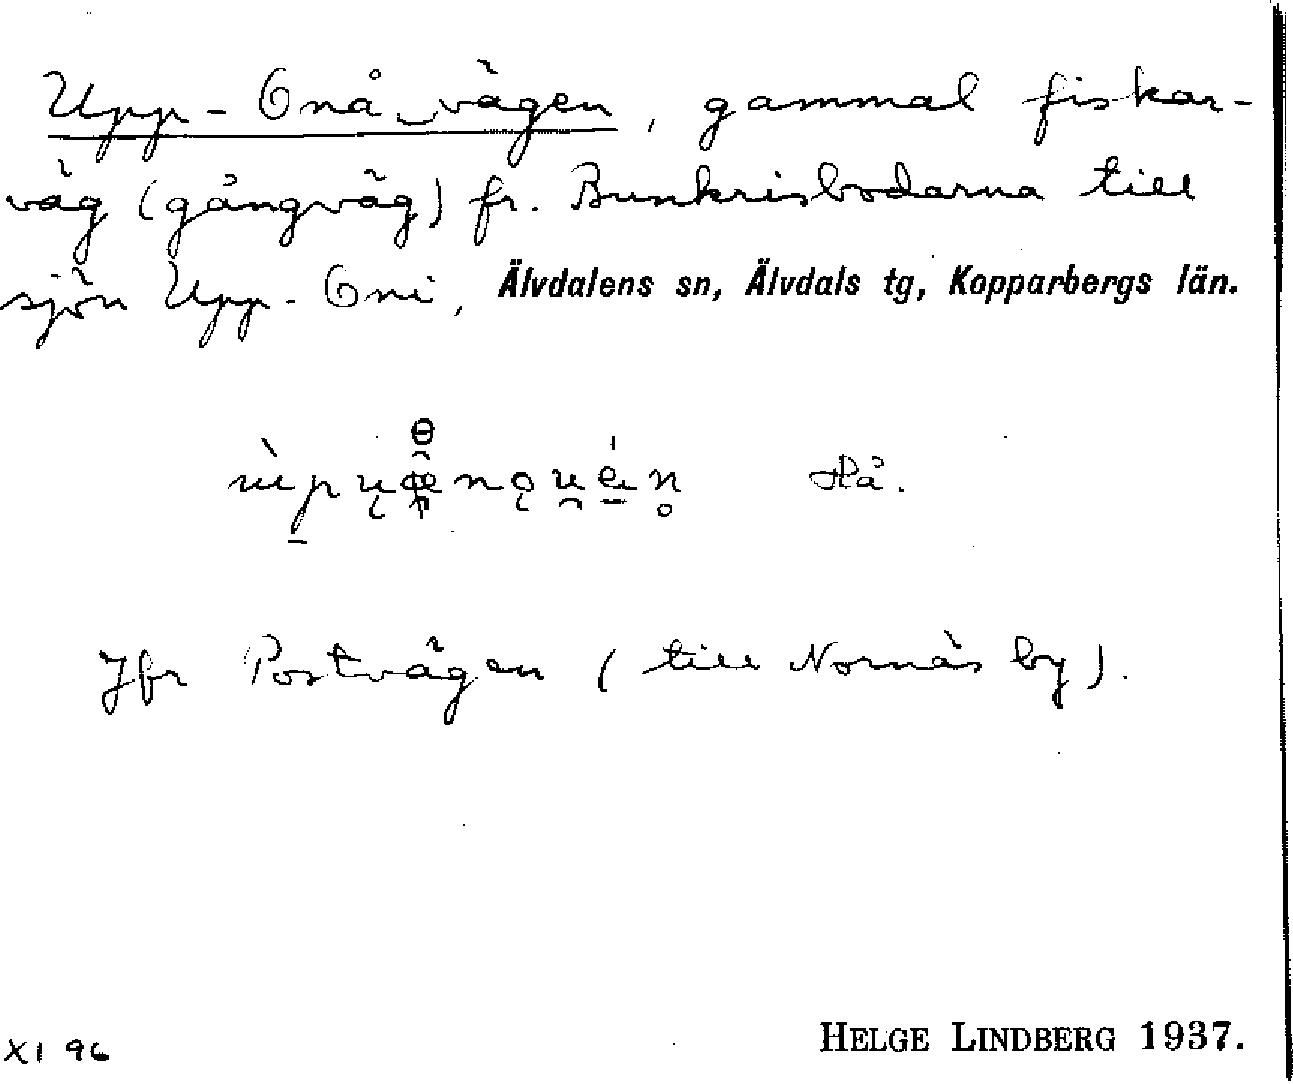 Upp-Onå‿vägen, gammal fiskar-
väg (gångväg) fr. Bunkrisbodarna till
sjön Upp-Oni, Älvdalens sn, Älvdals tg, Kopparbergs län.
Hå.
Jfr Postvägen (till Nornäs by).
HELGE LINDBERG 1937.
XI 96